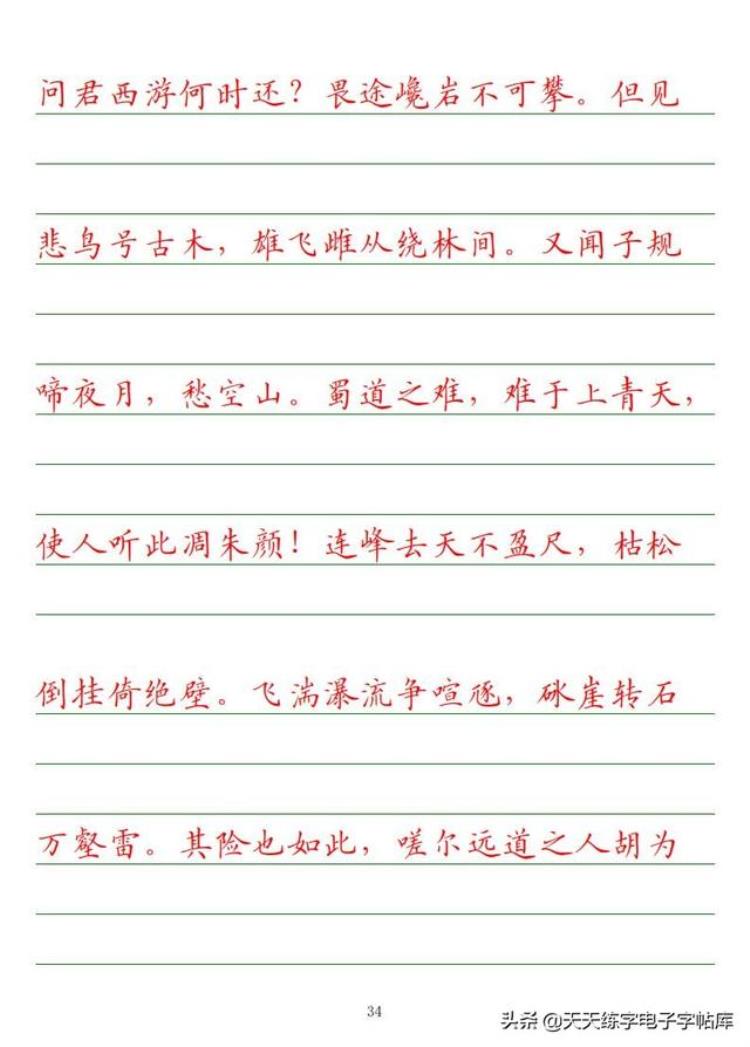 问君西游何时还？畏途巉岩不可攀。但见
悲鸟号古木，雄飞雌从绕林间。又闻子规
啼夜月，愁空山。蜀道之难，难于上青天，
使人听此凋朱颜！连峰去天不盈尺，枯松
倒挂倚绝壁。飞湍瀑流争喧豗，砯崖转石
万壑雷。其险也如此，嗟尔远道之人胡为
34
头条 @天天练字电子字帖库